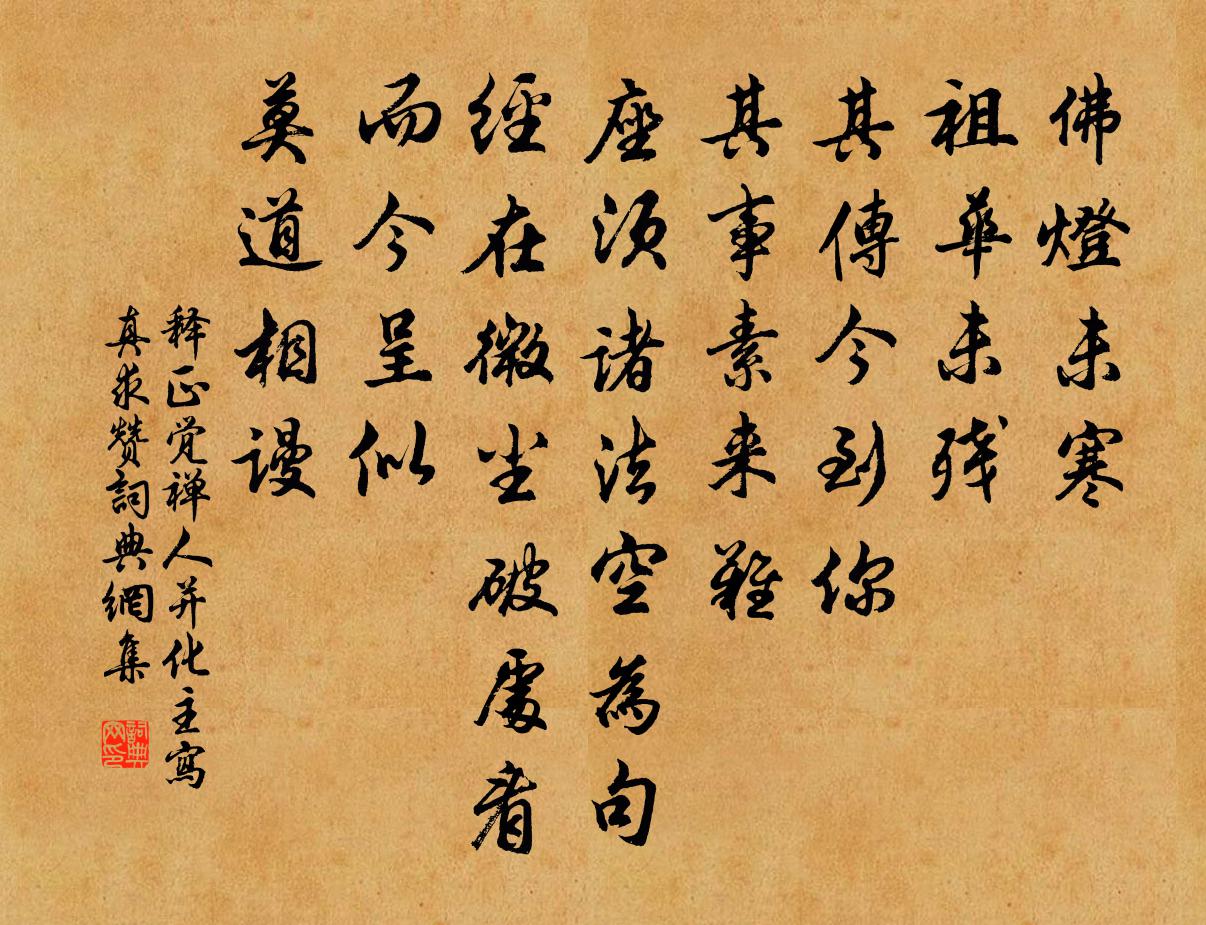 佛燈未寒
祖華未残
其傳今到你
其事素来難
座須諸法空為句
經在微尘破處看
而今呈似
莫道相谩
释正觉禅人并化主寫
真求赞詞典網集
詞典
网印